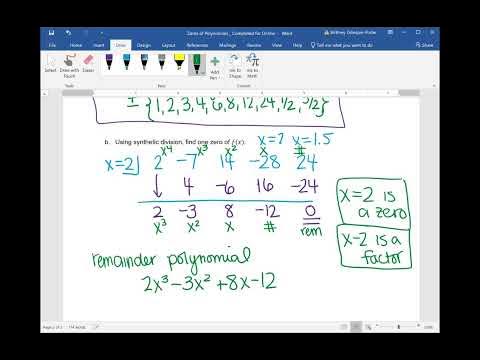 Zeros of Polynomials_ Completed for Online - Word
Brittney Gillespie-Pruitte
File Home Insert Draw Design Layout References Mailings Review View Help Tell me what you want to do Share
Draw Draw with Touch Eraser Add Pen Ink to Shape Ink to Math
Tools Pens Convert
± {1, 2, 3, 4, 6, 8, 12, 24, 1/2, 3/2}
b. Using synthetic division, find one zero of f(x). x=2 x=1.5
x⁴ x³ x² x #
x=2 2 -7 14 -28 24
↓ 4 -6 16 -24
2 -3 8 -12 0
x³ x² x # rem
x=2 is
a zero
x-2 is a
factor
remainder polynomial
2x³-3x²+8x-12